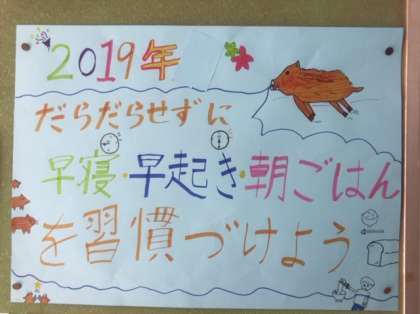 2019年
だらだらせずに
早寝・早起き・朝ごはん
を習慣づけよう